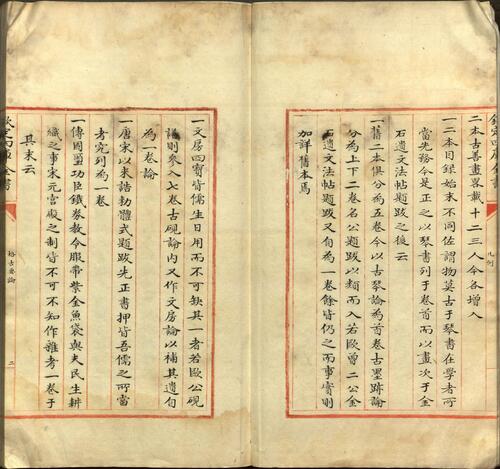 欽定四庫全書
凡例
二本古善畫畧載十二三人今各增入
一二本目録始末不同佐謂物莫古于琴書在學者所
當先務今是正之以琴書列于卷首而以畫次于金
石遺文法帖題跋之後云
一舊二本俱分為五卷今以古琴論為首卷古墨跡論
分為上下二卷名公題跋以類而入若歐曾二公金
石遺文法帖題跋又自為一卷餘皆仍之而事實則
加詳舊本焉
一文房四寶皆儒生日用而不可缺其一者若歐公硯
譜則參入七卷古硯論内又作文房論以補其遺自
為一卷論
一唐宋以來誥勅體式題跋先正書押皆吾儒之所當
考究列為一卷
一傳國璽功臣鐵券敎令服帶紫金魚袋與夫民生耕
織之事宋元宫殿之制皆不可不知作雜考一卷于
其末云
欽定四庫全書
格古要論
二